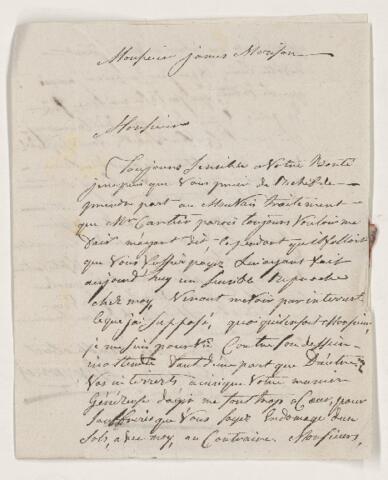 Monsieur james Morison
Monsieur
Toujours sensible a Votre Bonté
je ne puis que Vous prier de
prendre part au Mauvais traitement
que Mr Cartier parois toujours Vouloir me
fair m'ayant dit, Cependant qu'il
que Vous fussiez payez
aujourd huy un sensible Reproche
chez moy, Venant me voir par interest
a ce que jai supposé, quoi qu'il en soit Monsieur,
je me suis pourvu Contre son dessein
tant d'une part que
Vos interrets, ainsi que Votre maniere
Généreuse d'agir me tout trop a Coeur, pour
que Vous soyez Endomagé d'un
Sols, avec moy, au Contraire Monsieur,